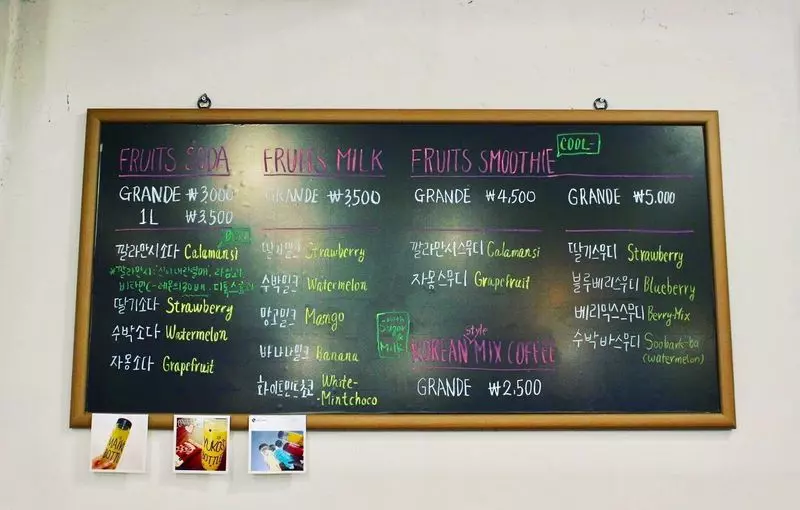 FRUITS SODA
GRANDE ₩3,000
1L ₩3,500
깔라만시소다 Calamansi
딸기소다 Strawberry
수박소다 Watermelon
자몽소다 Grapefruit
FRUITS MILK
GRANDE ₩3,500
딸기밀크 Strawberry
수박밀크 Watermelon
망고밀크 Mango
바나나밀크 Banana
화이트민트초코 White-
-Mintchoco
FRUITS SMOOTHIE
COOL-
GRANDE ₩4,500
깔라만시스무디 Calamansi
자몽스무디 Grapefruit
GRANDE ₩5.000
딸기스무디 Strawberry
블루베리스무디 Blueberry
베리믹스스무디 Berry-Mix
수박바스무디 Soobark-ba
(watermelon)
with
Sugar
&
Milk
style
KOREAN MIX COFFEE
GRANDE ₩2,500